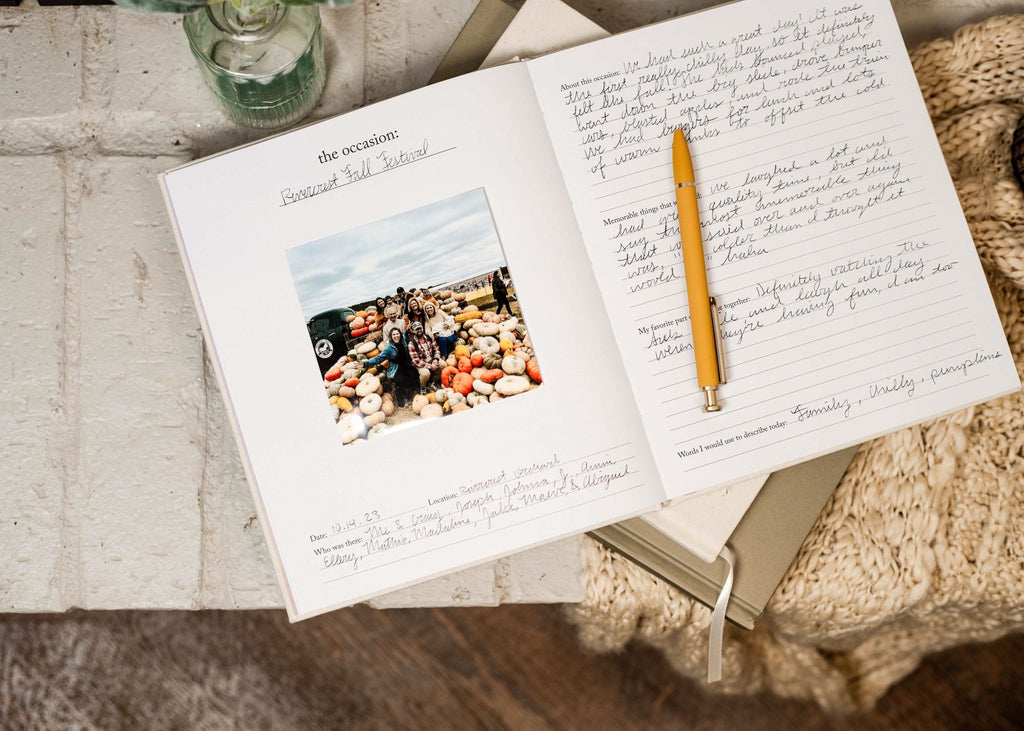 the occasion:
Rivercrest Fall Festival
Location: Rivercrest Orchard
Date: 10.14.23
Who was there: Me & Craig, Joseph, Johnna, Jr., Annin,
Ellery, Mathis, Madaline, Jake, Maeve & Abigail
About this occasion: We had such a great day! It was
the first really chilly day, so it definitely
felt like fall. The kids bounced, played,
went down the big slide, drove bumper
cars, blasted apples, and rode the train.
We had burgers for lunch and lots
of warm drinks to offset the cold
Memorable things that we laughed a lot and
had great quality time, but I'd
say the most memorable thing
that was said over and over again
was, "colder than I thought it
would haha
My favorite part together: Definitely watching the
kids and laugh all day.
When they're having fun, I am too
Words I would use to describe today: Family, chilly, pumpkins